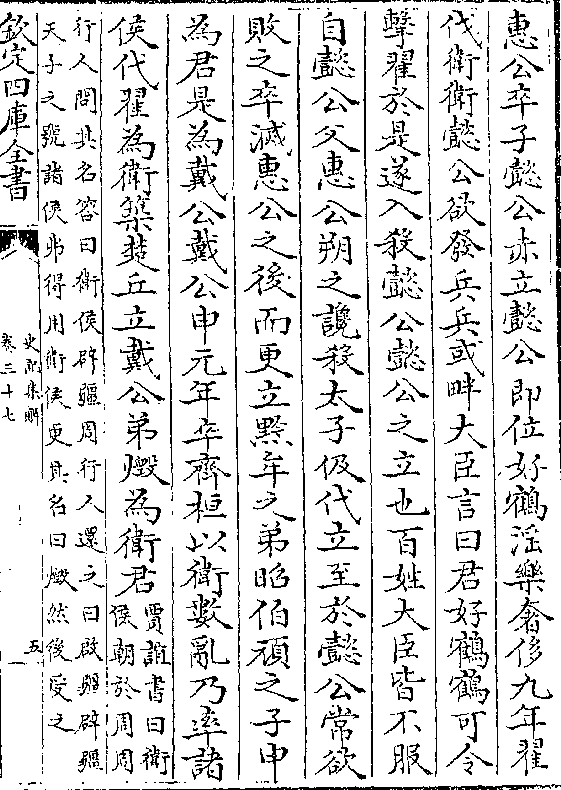 惠公卒子懿公赤立懿公即位好鶴淫樂奢侈九年翟
伐衛衛懿公欲發兵兵或畔大臣言曰君好鶴鶴可令
擊翟於是遂入殺懿公懿公之立也百姓大臣皆不服
自懿公父惠公朔之讒殺太子伋代立至於懿公常欲
敗之卒滅惠公之後而更立黔牟之弟昭伯頑之子申
為君是為戴公戴公申元年卒齊桓以衛數亂乃率諸
侯伐翟為衛築楚丘立戴公弟燬為衛君
賈誼書曰衛
侯朝於周周
行人問其名答曰衛侯辟疆周行人還之曰啟疆辟疆
天子之號諸侯弗得用衛侯更其名曰燬然後受之
欽定四庫全書
史記集解
卷三十七
五